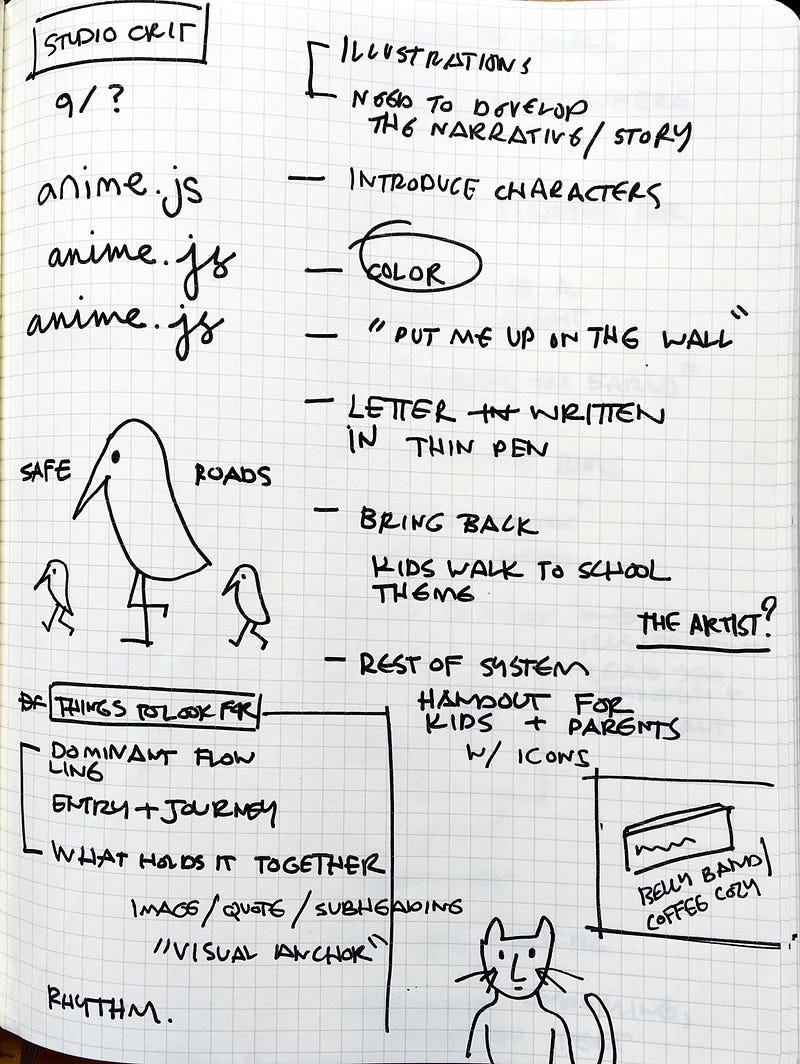 STUDIO CRIT
9/?
anime.js
anime.js
anime.js
SAFE ROADS
ILLUSTRATIONS
NEED TO DEVELOP
THE NARRATIVE/STORY
— INTRODUCE CHARACTERS
— COLOR
— "PUT ME UP ON THE WALL"
— LETTER IN WRITTEN
IN THIN PEN
— BRING BACK
KIDS WALK TO SCHOOL
THEME
THE ARTIST?
— REST OF SYSTEM
HANDOUT FOR
KIDS + PARENTS
W/ ICONS
BELLY BAND/
COFFEE COZY
THINGS TO LOOK FOR
DOMINANT FLOW
LINE
ENTRY + JOURNEY
WHAT HOLDS IT TOGETHER
IMAGE/QUOTE/SUBHEADING
"VISUAL ANCHOR"
RHYTHM.